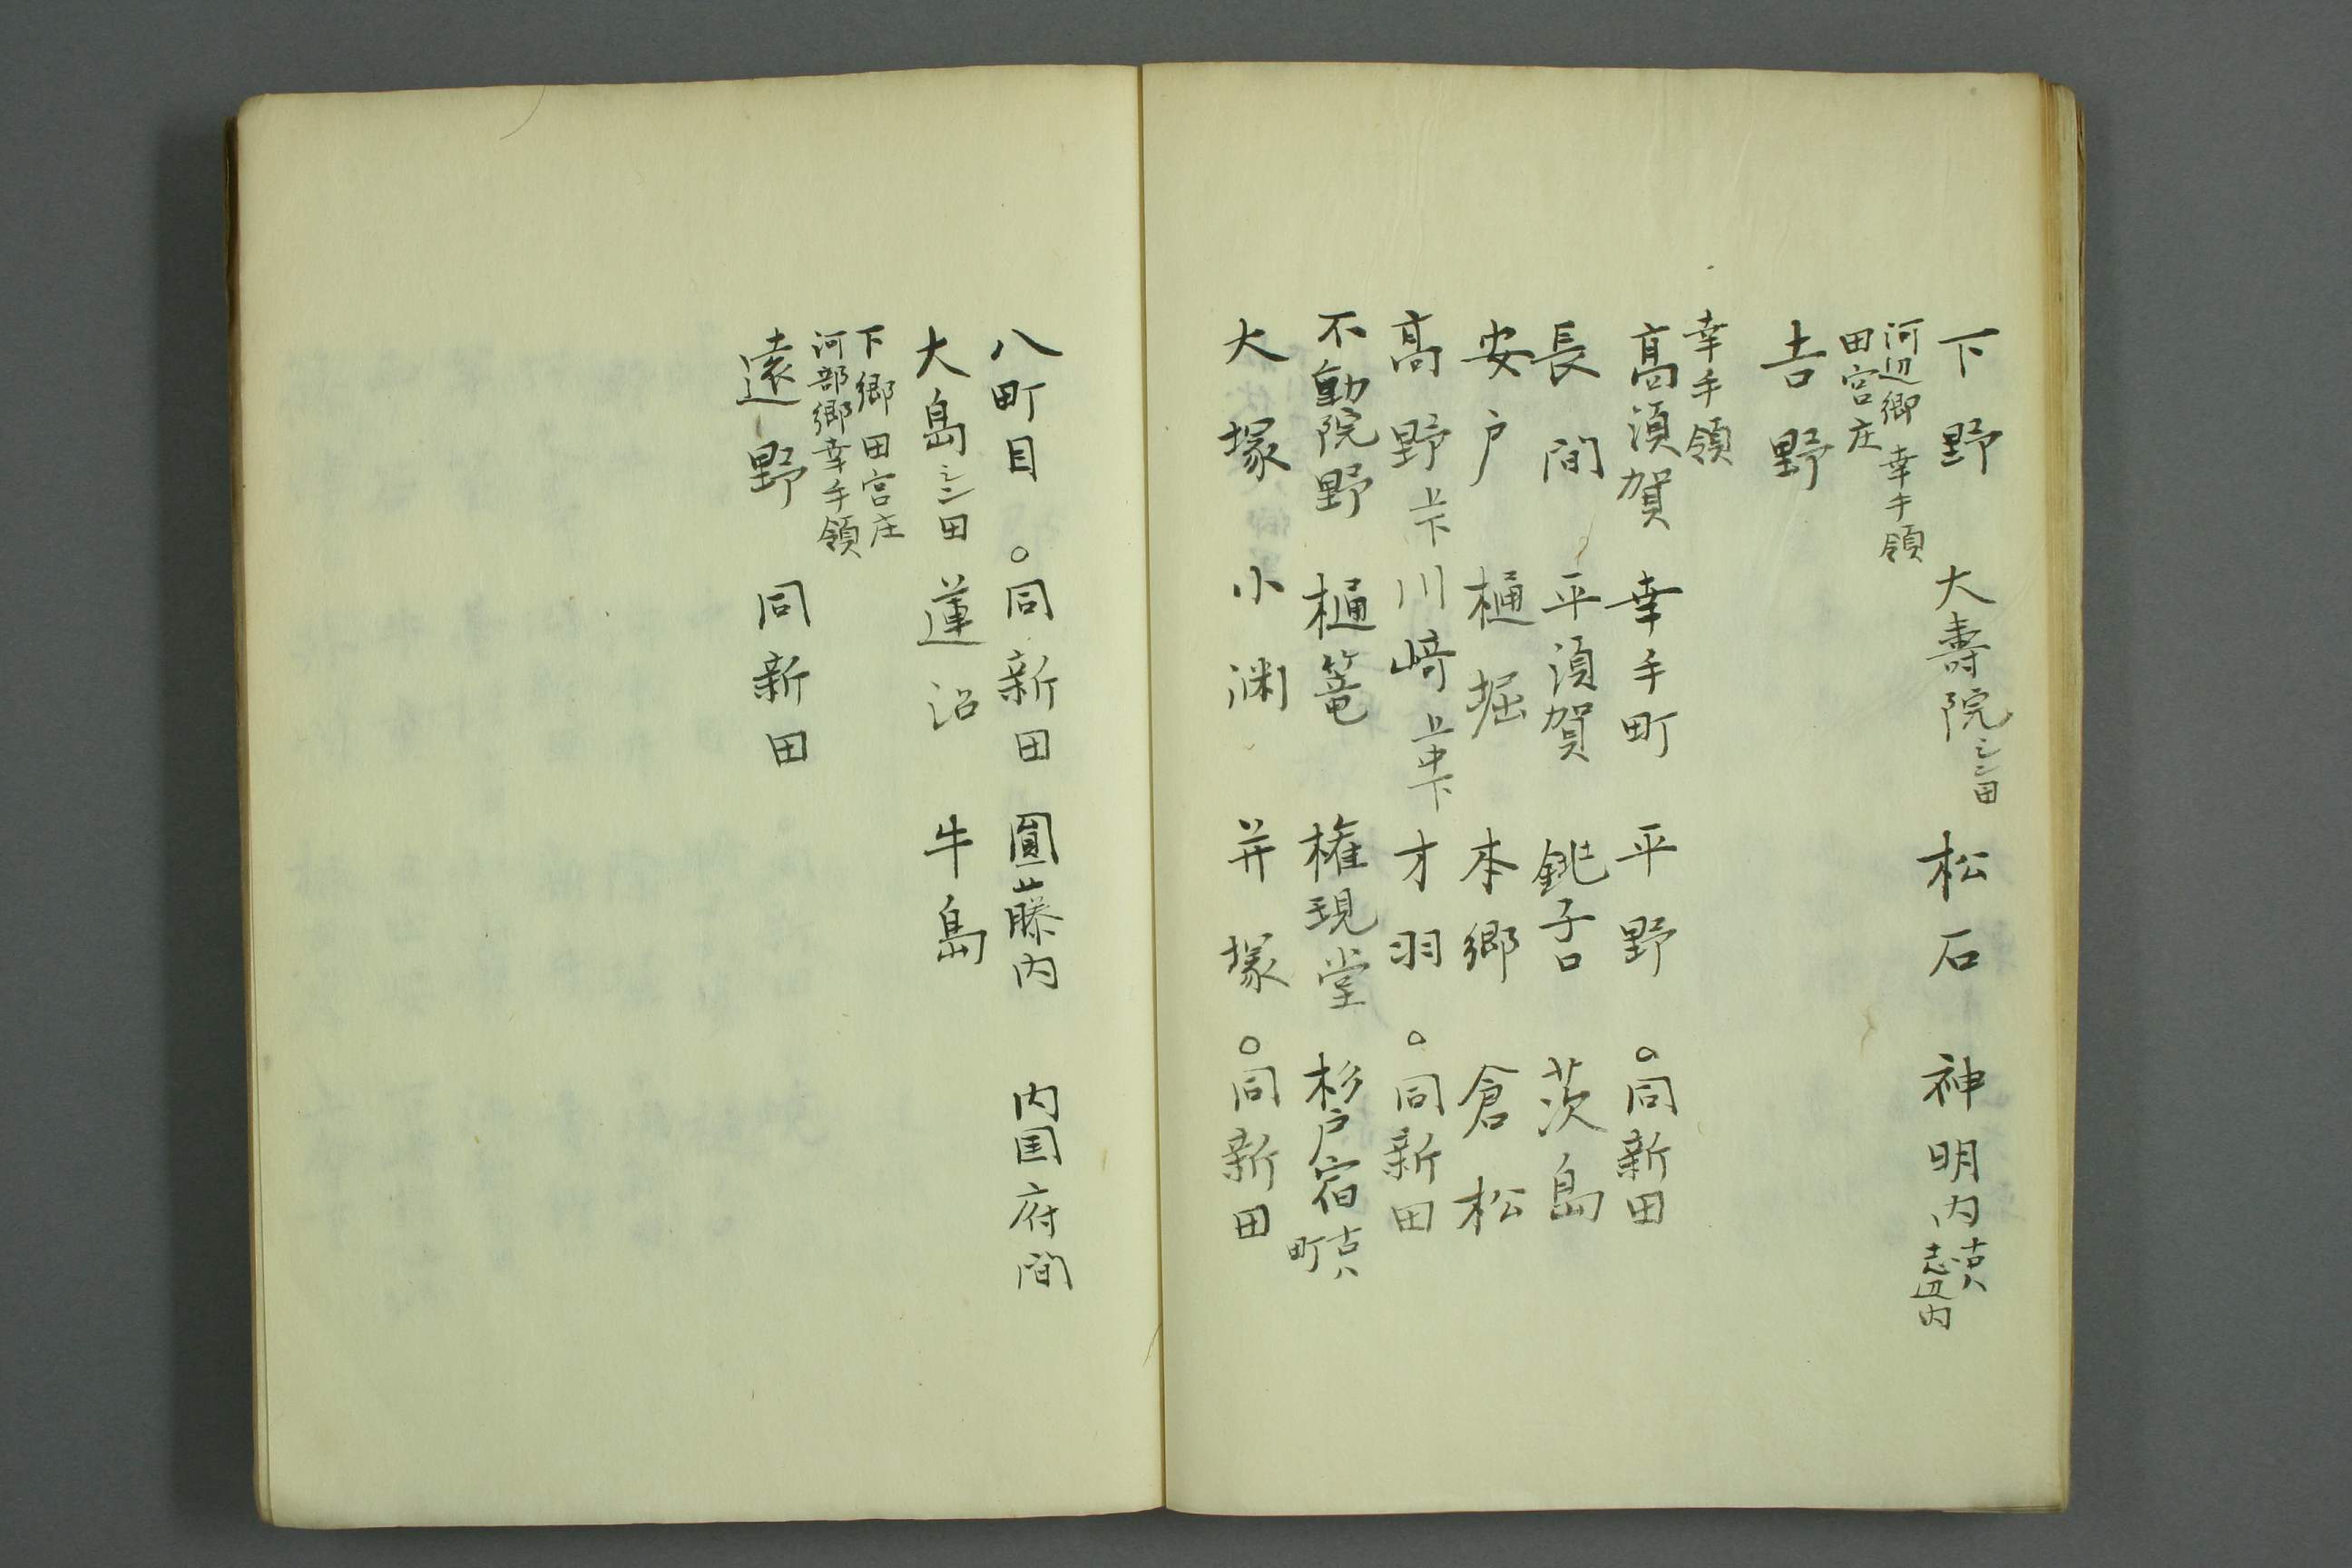 下野　大壽院シン田　松石　神明内古ハ志辺内
河辺郷　幸手領
田宮庄
吉野
幸手領
高須賀　幸手町　平野　○同新田
長間　平須賀　銚子口　茨島
安戸　樋堀　本郷　倉松
高野上下　川崎上中下　才羽　○同新田
不動院野　樋篭　権現堂　杉戸宿古ハ町
大塚　小渕　并塚　○同新田
八町目　○同新田　圓藤内　内国府間
大島シン田　蓮沼　牛島
下郷　田宮庄
河部郷幸手領
遠野　同新田